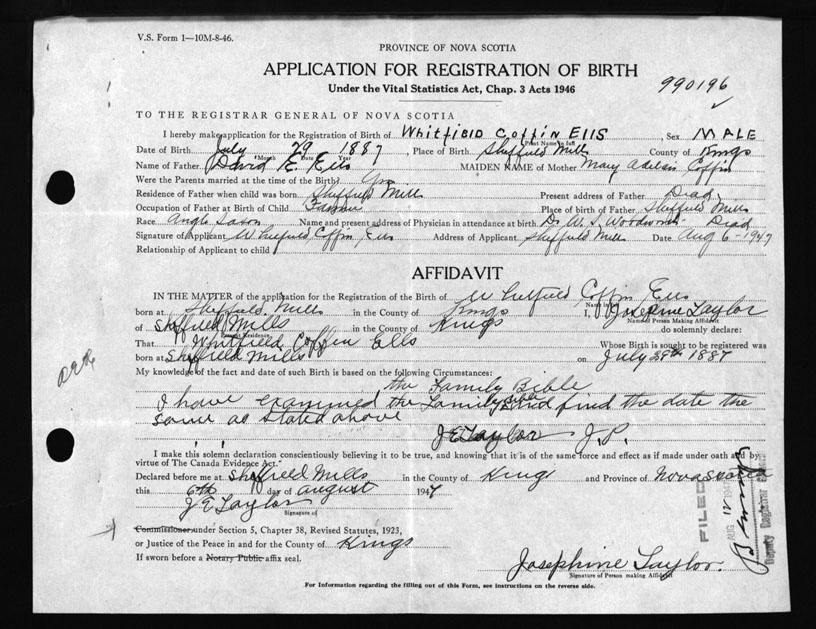 V.S. Form 1—10M-8-46.
PROVINCE OF NOVA SCOTIA
APPLICATION FOR REGISTRATION OF BIRTH
Under the Vital Statistics Act, Chap. 3 Acts 1946
990196
TO THE REGISTRAR GENERAL OF NOVA SCOTIA
I hereby make application for the Registration of Birth of Whitfield Coffin Ells, Sex MALE
Print Name in full
Date of Birth July 29 1887, Place of Birth Sheffield Mills County of Kings
Month Date Year
Name of Father David E. Ells MAIDEN NAME of Mother Mary Coffin
Were the Parents married at the time of the Birth? Yes
Residence of Father when child was born Sheffield Mills Present address of Father Dead
Occupation of Father at Birth of Child Farmer Place of birth of Father Sheffield Mills
Race Anglo Saxon Name and present address of Physician in attendance at birth Dr. W. Dead
Signature of Applicant Whitfield Coffin Ells Address of Applicant Sheffield Mills Date Aug 6-1947
Relationship of Applicant to child
AFFIDAVIT
IN THE MATTER of the application for the Registration of the Birth of Whitfield Coffin Ells
Name in full
born at Sheffield Mills in the County of Kings I, Josephine Taylor
Name of Person Making Affidavit
of Sheffield Mills in the County of Kings do solemnly declare:
That Whitfield Coffin Ells Whose Birth is sought to be registered was
born at Sheffield Mills on July 29th 1887
My knowledge of the fact and date of such Birth is based on the following Circumstances:
the Family Bible
I have examined the Family Bible and find the date the
same as stated above
J E Taylor J.P.
I make this solemn declaration conscientiously believing it to be true, and knowing that it is of the same force and effect as if made under oath and by
virtue of The Canada Evidence Act.
Declared before me at Sheffield Mills in the County of Kings and Province of Nova Scotia
this 6th day of August 1947
J E Taylor
Signature of
Commissioner under Section 5, Chapter 38, Revised Statutes, 1923,
or Justice of the Peace in and for the County of Kings
If sworn before a Notary Public affix seal.
Josephine Taylor
Signature of Person making Affidavit
For Information regarding the filling out of this Form, see instructions on the reverse side.
FILED
AUG 12 194
Deputy Registrar